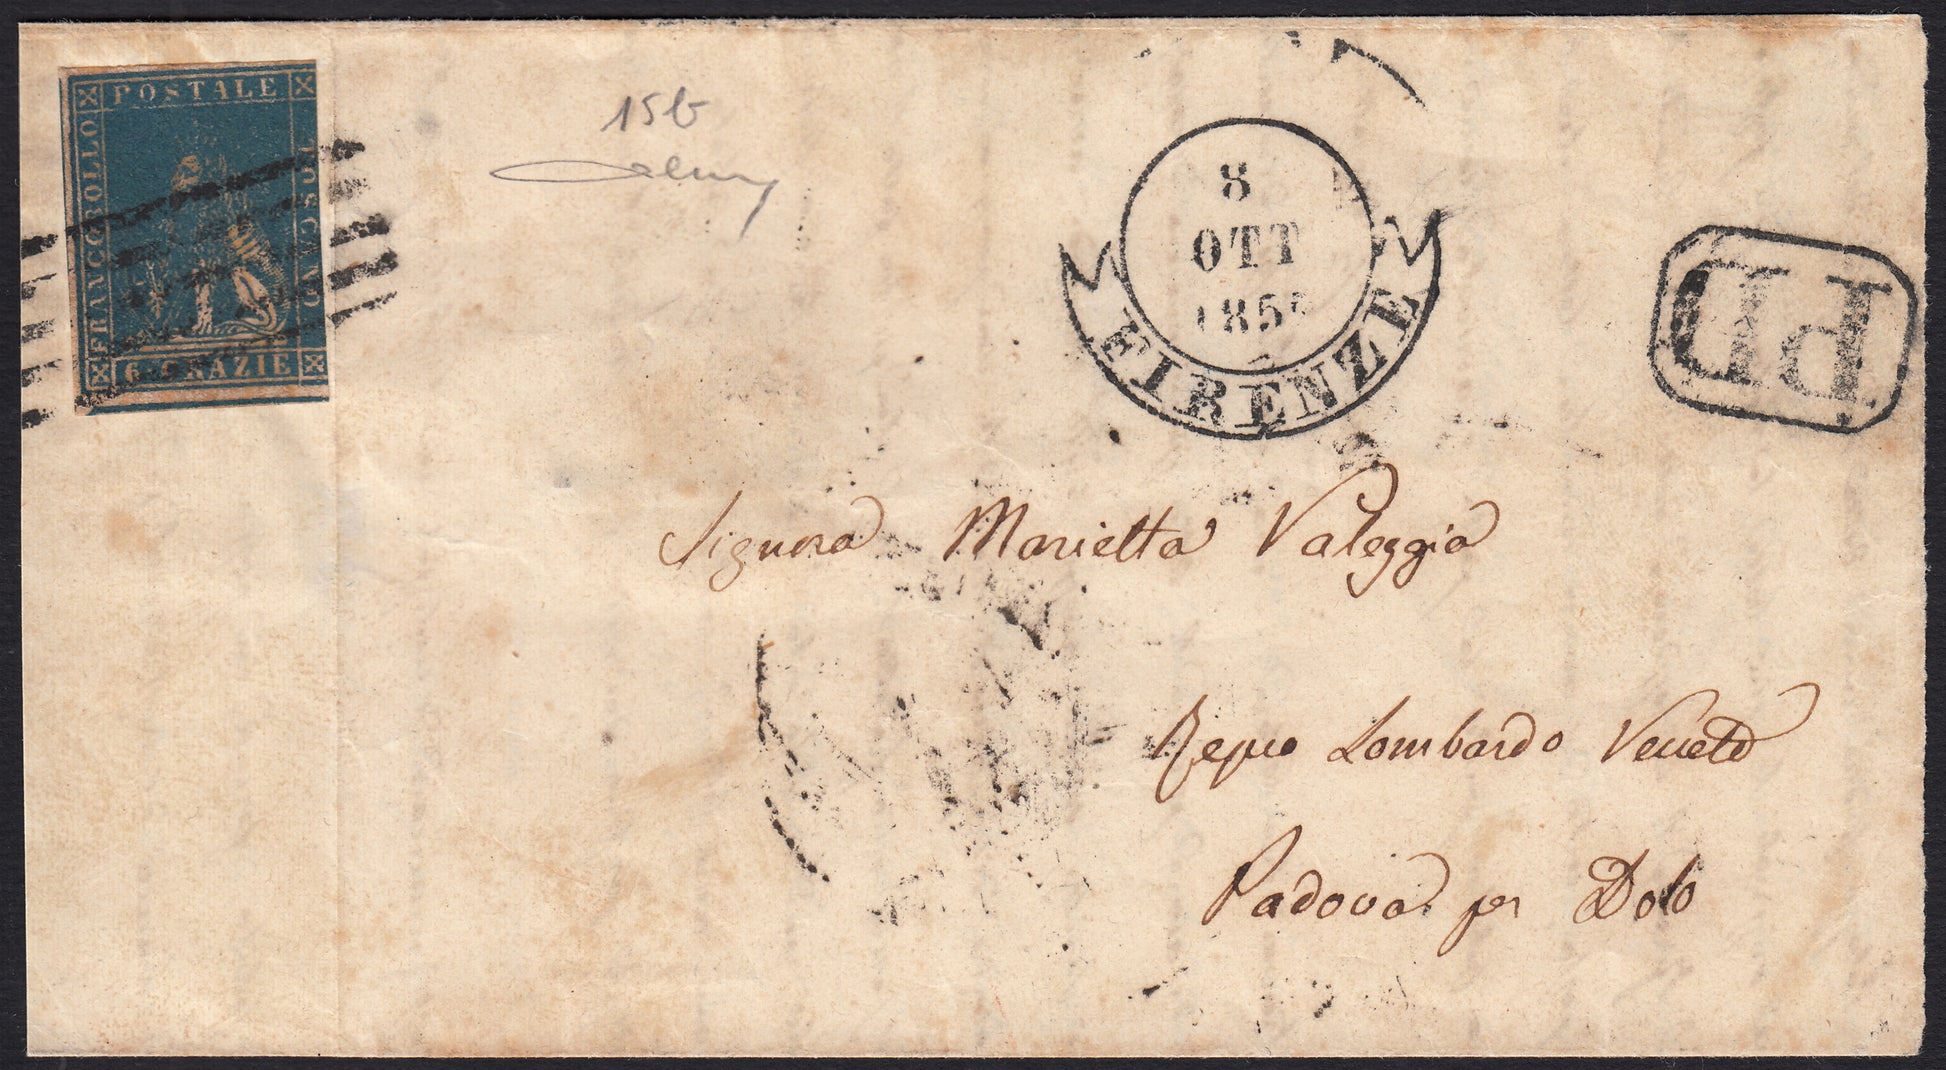 POSTALE
FRANCOBOLLO
TOSCANO
6 CRAZIE
15b
8
OTT
185
FIRENZE
PD
Signora Marietta Valeggia
Regno Lombardo Veneto
Padova per Dolo